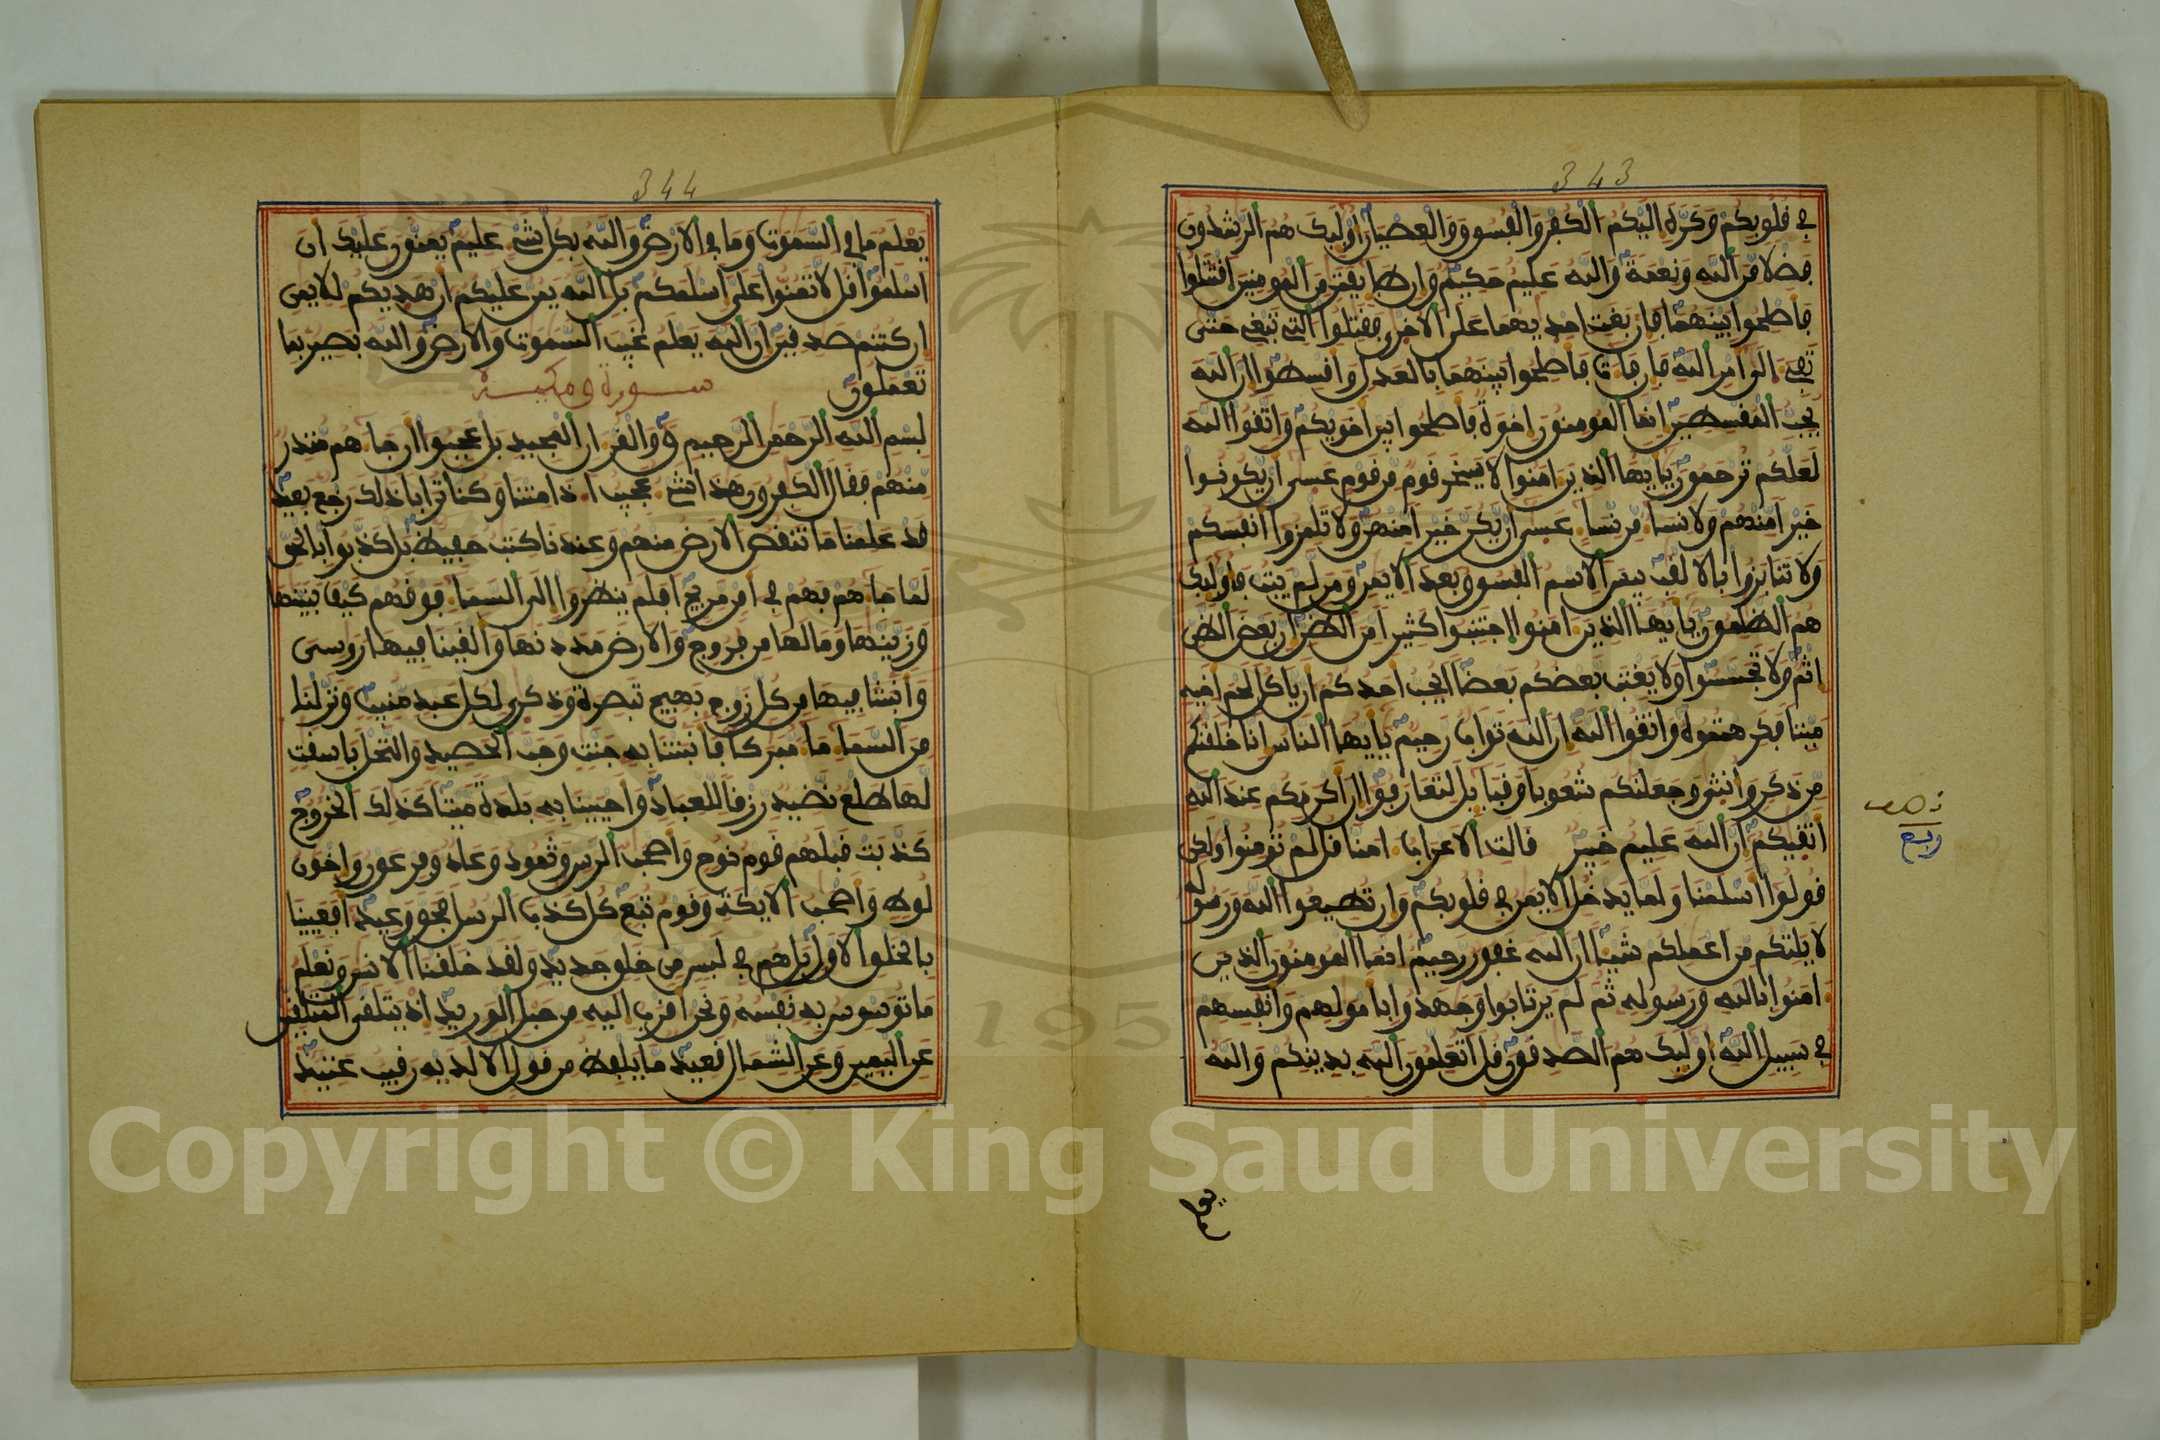 343
في قلوبكم وكره اليكم الكفر والفسوق والعصيان أوليك هم الرشدون
فضلا من الله ونعمة والله عليم حكيم وان طايفتن من المومنين اقتتلوا
فاصلحوا بينهما فان بغت احديهما على الاخرى فقتلوا التي تبغي حتى
تفيء الى امر الله فان فاءت فاصلحوا بينهما بالعدل وأقسطوا ان الله
يحب المقسطين انما المومنون اخوة فاصلحوا بين اخويكم واتقوا الله
لعلكم ترحمون يايها الذين امنوا لا يسخر قوم من قوم عسى ان يكونوا
خيرا منهم ولا نساء من نساء عسى ان يكن خيرا منهن ولا تلمزوا انفسكم
ولا تنابزوا بالالقب بيس الاسم الفسوق بعد الايمن ومن لم يتب فأوليك
هم الظلمون يايها الذين امنوا اجتنبوا كثيرا من الظن ان بعض الظن
اثم ولا تجسسوا ولا يغتب بعضكم بعضا ايحب احدكم ان ياكل لحم اخيه
ميتا فكرهتموه واتقوا الله ان الله تواب رحيم يايها الناس انا خلقنكم
من ذكر وانثى وجعلنكم شعوبا وقبايل لتعارفوا ان اكرمكم عند الله
اتقيكم ان الله عليم خبير قالت الاعراب امنا قل لم تومنوا ولكن
قولوا اسلمنا ولما يدخل الايمن في قلوبكم وان تطيعوا الله ورسوله
لا يلتكم من اعملكم شيا ان الله غفور رحيم انما المومنون الذين
امنوا بالله ورسوله ثم لم يرتابوا وجهدوا باموالهم وانفسهم
في سبيل الله أوليك هم الصدقون قل اتعلمون الله بدينكم والله
ربع
يعلم
344
يعلم ما في السموت وما في الارض والله بكل شيء عليم يمنون عليك ان
اسلموا قل لا تمنوا على اسلمكم بل الله يمن عليكم ان هديكم للايمن
ان كنتم صدقين ان الله يعلم غيب السموت والارض والله بصير بما
تعملون سورة ق مكية
بسم الله الرحمن الرحيم ق والقران المجيد بل عجبوا ان جاءهم منذر
منهم فقال الكفرون هذا شيء عجيب اذا متنا وكنا ترابا ذلك رجع بعيد
قد علمنا ما تنقص الارض منهم وعندنا كتب حفيظ بل كذبوا بالحق
لما جاءهم فهم في امر مريج افلم ينظروا الى السماء فوقهم كيف بنينها
وزينها وما لها من فروج والارض مددنها والقينا فيها روسى
وانبتنا فيها من كل زوج بهيج تبصرة وذكرى لكل عبد منيب ونزلنا
من السماء ماء مبركا فانبتنا به جنت وحب الحصيد والنخل باسقت
لها طلع نضيد رزقا للعباد واحيينا به بلدة ميتا كذلك الخروج
كذبت قبلهم قوم نوح واصحب الرس وثمود وعاد وفرعون واخون
لوط واصحب الايكة وقوم تبع كل كذب الرسل فحق وعيد افعيينا
بالخلق الاول بل هم في لبس من خلق جديد ولقد خلقنا الانسن ونعلم
ما توسوس به نفسه ونحن اقرب اليه من حبل الوريد اذ يتلقى المتلقين
عن اليمين وعن الشمال قعيد ما يلفظ من قول الا لديه رقيب عتيد
Copyright © King Saud University
195